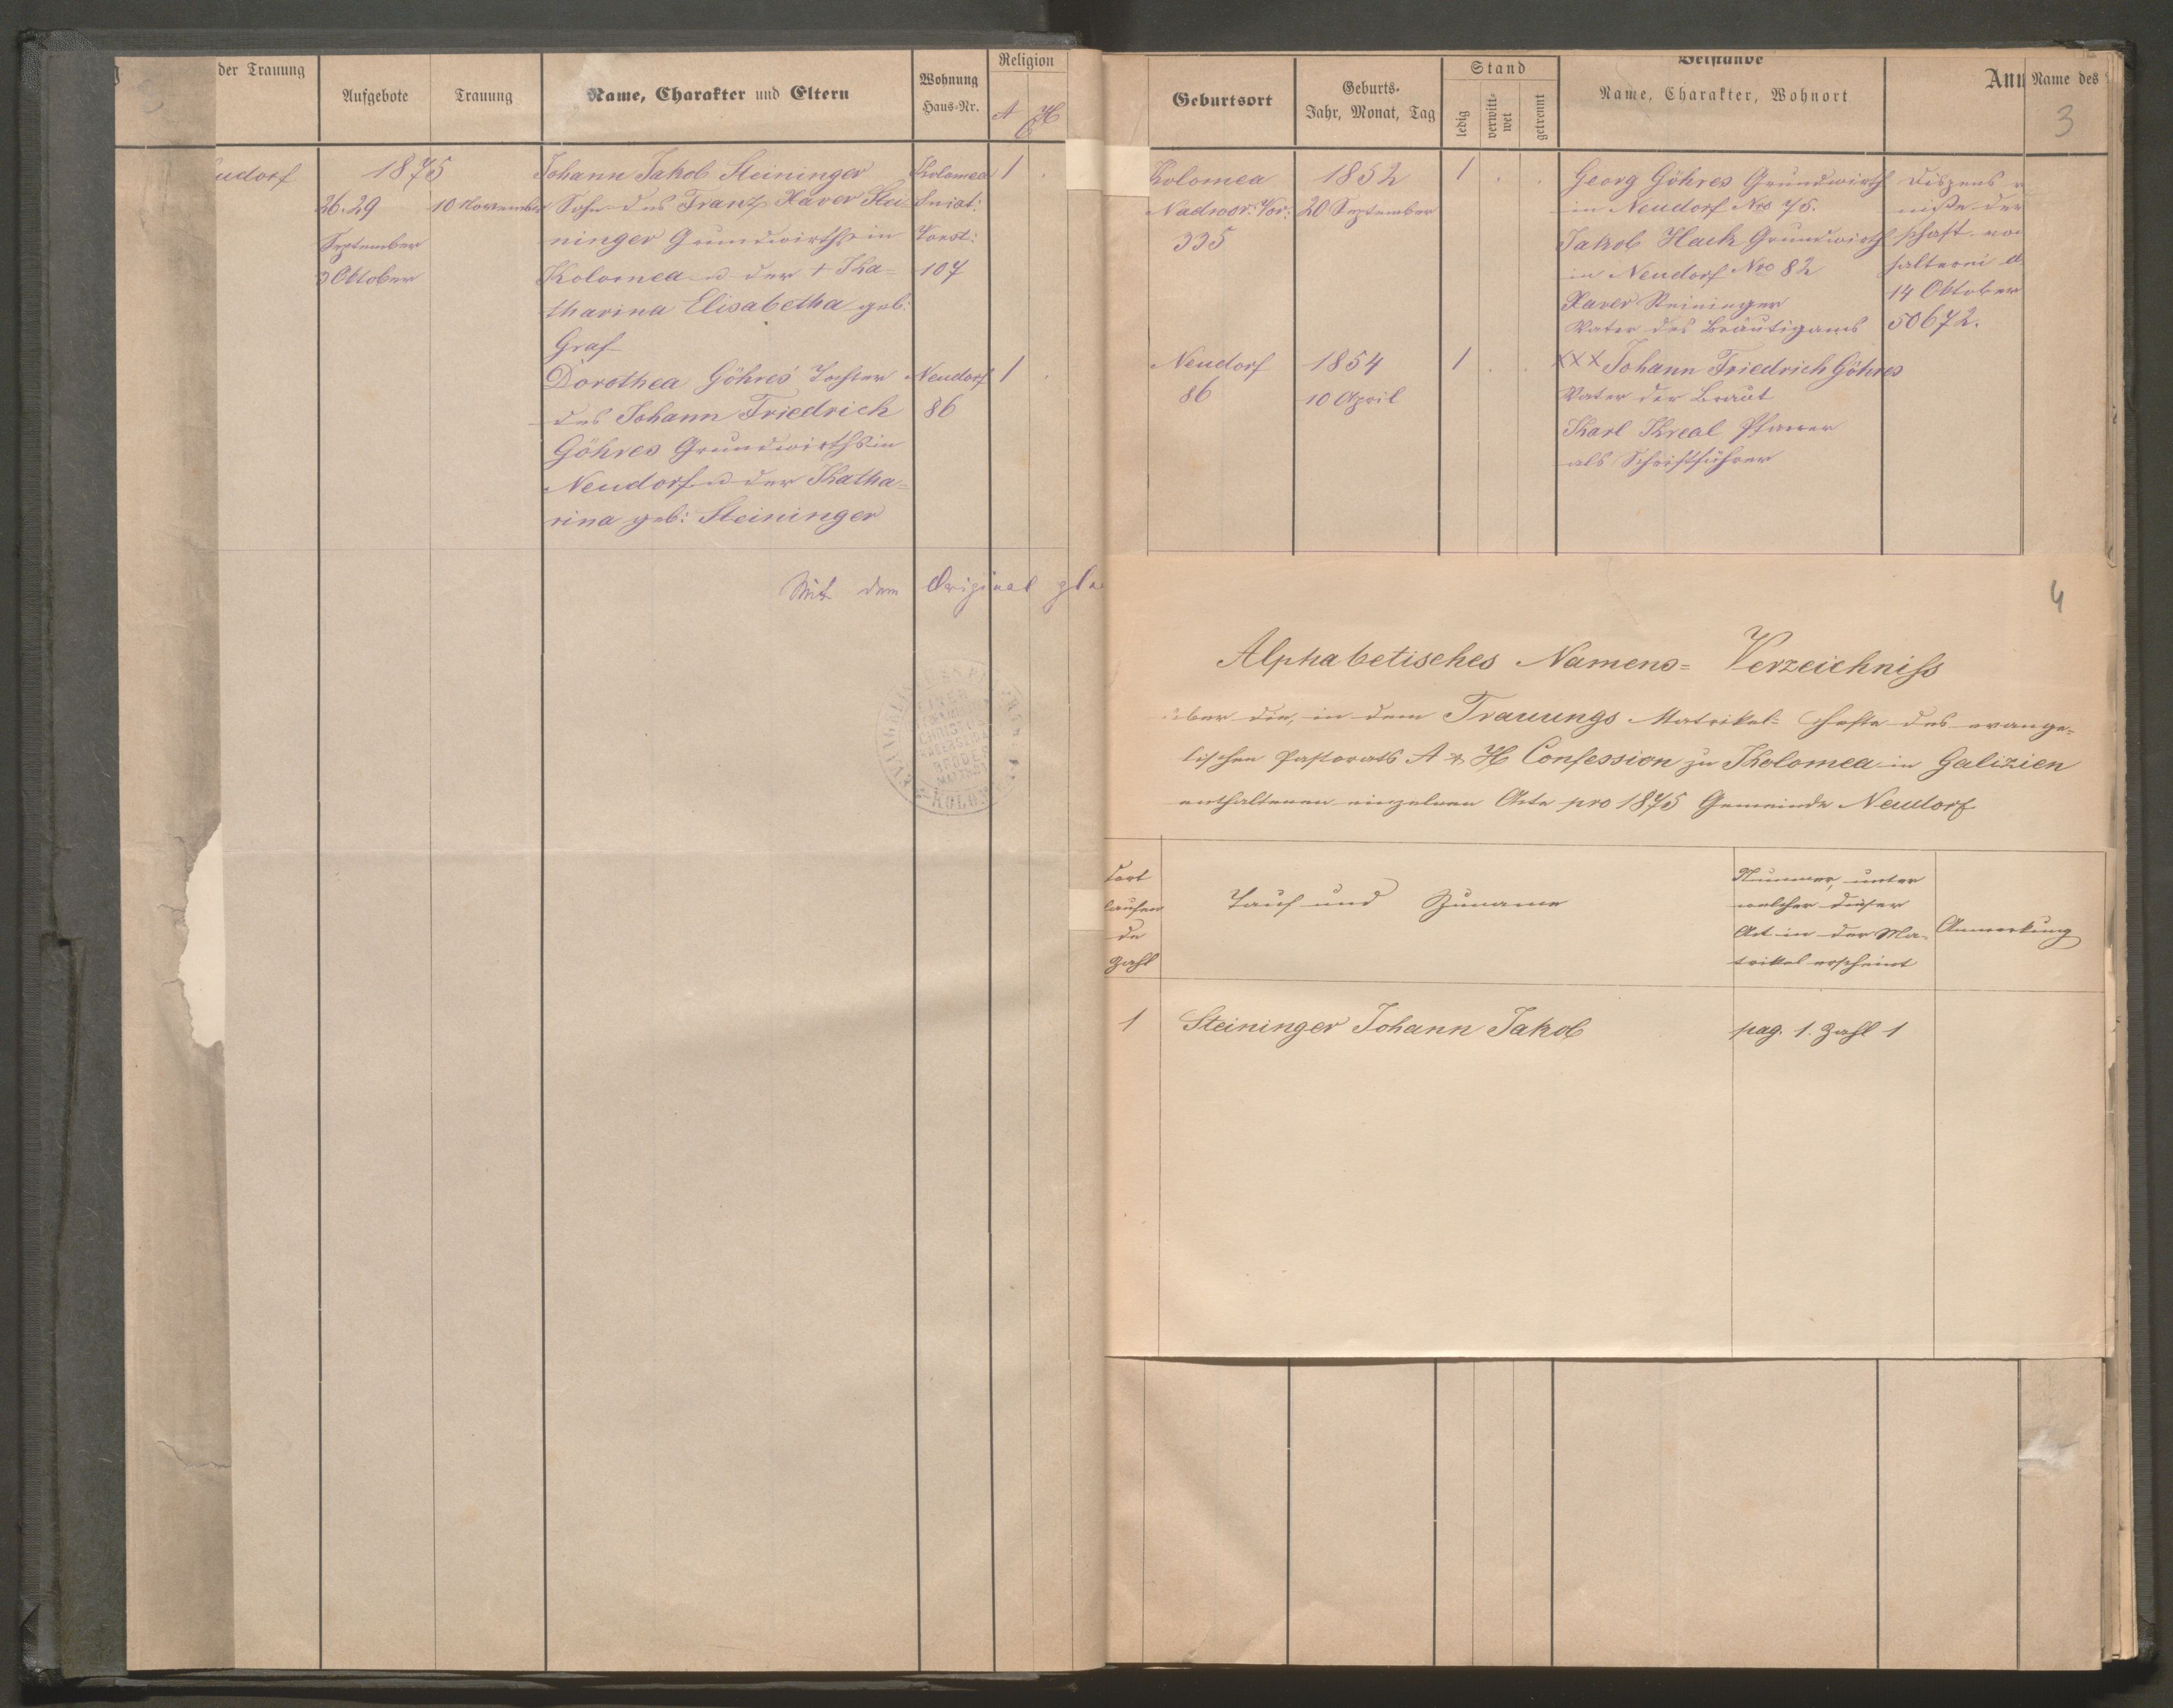 der Trauung
Aufgebote
Trauung
Name, Charakter und Eltern
Wohnung
Haus-Nr.
Religion
A H
C
udorf
1875
26. 29
September
3 Oktober
10 November
Johann Jakob Steininger
Sohn des Franz Xaver Stei-
ninger Grundwirths in
Kolomea u der + Ka-
tharina Elisabetha geb:
Graf
Kolomea
Sniat:
Vorst:
107
1 .
Dorothea Göhres Tochter
des Johann Friedrich
Göhres Grundwirths in
Neudorf u der Katha-
rina geb: Steininger
Neudorf
86
1 .
Mit dem Original gl
KOLOM
Geburtsort
Geburts-
Jahr, Monat, Tag
Stand
ledig
verwitt-
wet
getrennt
Beistände
Name, Charakter, Wohnort
Anm
Name des
3
Kolomea
Nadwor: Vor:
335
1852
20 September
1 . .
Georg Göhres Grundwirth
in Neudorf Nro 75.
Jakob Hack Grundwirth
in Neudorf Nro 82
Xaver Steininger
Vater des Bräutigams
Dispens v
niße der
schaft vo
halterei d
14 Oktober
50672.
Neudorf
86
1854
10 April
1 . .
XXX Johann Friedrich Göhres
Vater der Braut
Karl Kreal Pfarrer
als Schriftführer
4
Alphabetisches Namens- Verzeichniss
über die, in dem Trauungs Matrikel- Hefte des evange-
lischen Pastorats A & H Confession zu Kolomea in Galizien
enthaltenen einzelnen Acte pro 1875 Gemeinde Neudorf
Fort
laufen
de
Zahl
Tauf und Zuname
Nummer, unter
welcher dieser
Act in der Ma-
trikel erscheint
Anmerkung
1
Steininger Johann Jakob
pag. 1. Zahl 1